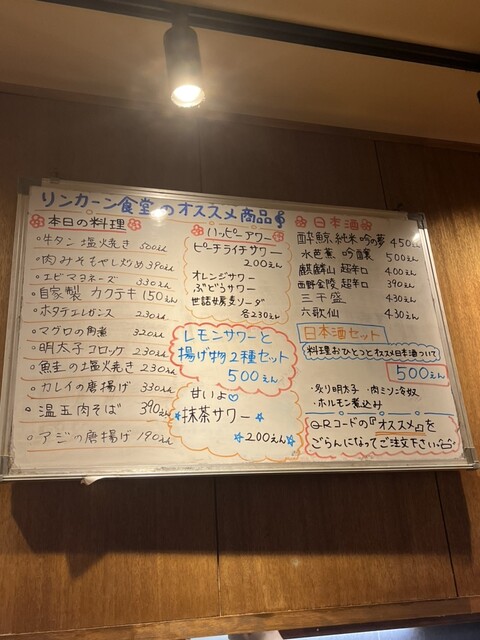 リンカーン食堂のオススメ商品
本日の料理
・牛タン塩焼き 500えん
・肉みそもやし炒め 390えん
・エビマヨネーズ 330えん
・自家製カクテキ 150えん
・ホタテエレガンス 230えん
・マグロの角煮 320えん
・明太子コロッケ 230えん
・魚圭の塩焼き 230えん
・カレイの唐揚げ 330えん
・温玉肉そば 390えん
・アジの唐揚げ 190えん
ハッピーアワー
ピーチライチサワー
200えん
オレンジサワー
ぶどうサワー
世話爆麦ソーダ
各230えん
レモンサワーと
揚げ物2種セット
500えん
甘いよ♡
抹茶サワー
200えん
日本酒
酔鯨 純米 吟の夢 450えん
水芭蕉 吟醸 500えん
麒麟山 超辛口 400えん
西野金陵 超辛口 390えん
三千盛 430えん
六歌仙 430えん
日本酒セット
料理おひとつとオススメ日本酒ついて
500えん
・炙り明太子 ・肉ミソ冷奴
・ホルモン煮込み
QRコードの『オススメ』を
ごらんになってご注文下さい